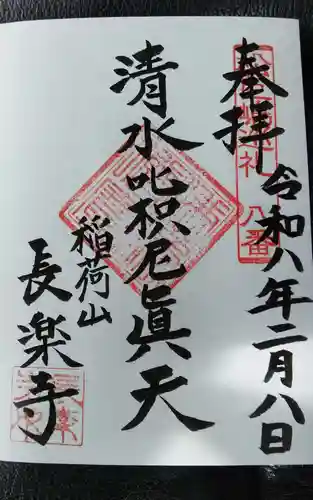 奉拝
令和八年二月八日
清水吒枳尼眞天
稲荷山
長楽寺
八番